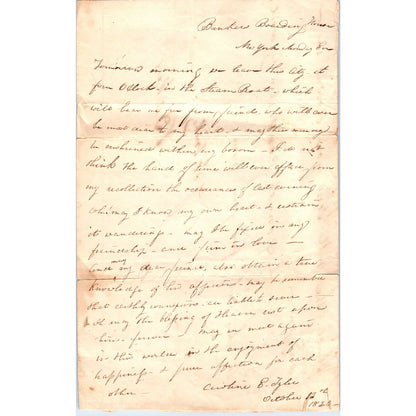 Bunkers Boarding House
New York Monday Eve
Tomorrow morning we leave this City, at
four OClock in the Steam Boat, which
will bear us far from friends who will ever
be most dear to my heart, & may their memory
be enshrined within my bosom - I do not
think the hand of time will ever efface from
my recollection the occurances of last evening
may I know my own heart & restrain
it wandering - may I be fixed in my
friendship - and in love -
and may my dear friend, also obtain a true
knowledge of his affections, may he remember
that earthly connexions are liable to sever -
& may the blessing of Heaven rest upon
him - forever - may we meet again
in this world in the enjoyment of
happiness & pure affection for each
other -
Caroline E. Tyler
October 12th